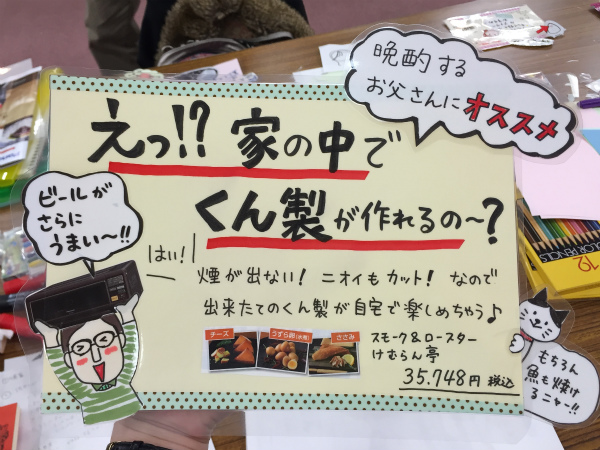 晩酌する
お父さんにオススメ
えっ!? 家の中で
くん製が作れるの〜?
ビールが
さらに
うまい〜!!
はい!
煙が出ない! ニオイもカット! なので
出来たてのくん製が自宅で楽しめちゃう♪
チーズ
うずら卵(水煮)
ささみ
スモーク&ロースター
けむらん亭
35.748円 税込
もちろん
魚も焼け
るニャー!!
12
COLOR PENCILS